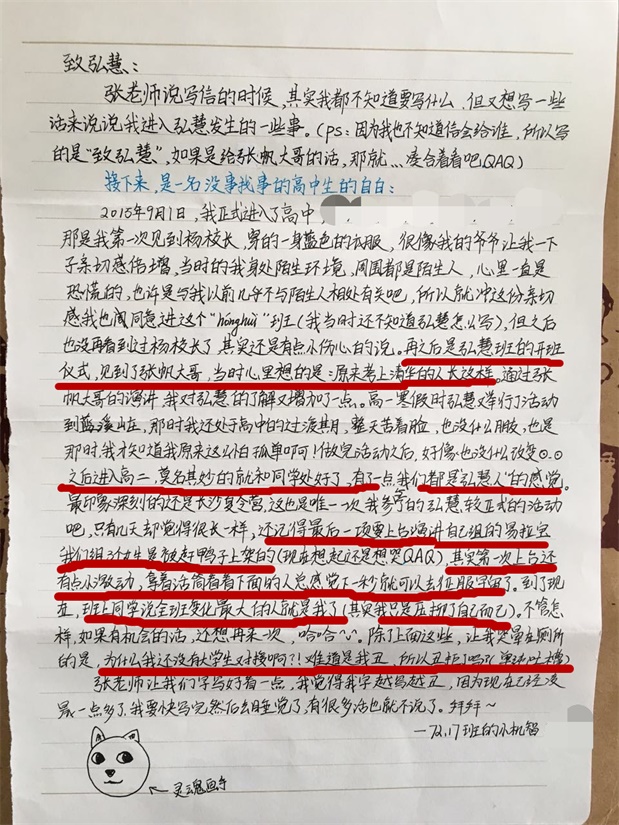 致弘慧：
张老师说写信的时候，其实我都不知道要写什么，但又想写一些
话来说说我进入弘慧发生的一些事。（ps：因为我也不知道信会给谁，所以写
的是“致弘慧”，如果是给张帆大哥的话，那就...凑合着看吧QAQ）
接下来，是一名没事找事的高中生的自白：
2015年9月1日，我正式进入了高中，
那是我第一次见到杨校长，穿的一身蓝色的衣服，很像我的爷爷让我一下
子亲切感倍增，当时的我身处陌生环境，周围都是陌生人，心里一直是
恐慌的，也许是与我以前几乎不与陌生人相处有关吧，所以就冲这份亲切
感我也闹同意进这个“hónghuì”班（我当时还不知道弘慧怎么写），但之后
也没再看到过杨校长了，其实还是有点小伤心的说。再之后是弘慧班的开班
仪式，见到了张帆大哥，当时心里想的是：原来考上清华的人长这样。通过张
帆大哥的演讲，我对弘慧的了解又增加了一点。高一寒假时弘慧举行了活动
到蓝溪山庄，那时我还处于高中的过渡其月，整天苦着脸，也没什么朋友，也是
那时，我才知道我原来这么怕孤单啊！做完活动之后，好像也没什么改变⊙.⊙
之后进入高二，莫名其妙的就和同学处好了，有了一点“我们都是弘慧人”的感觉。
最印象深刻的还是长沙夏令营，这也是唯一一次我参与的弘慧较正式的活动
吧，只有几天却觉得很长一样，还记得最后一项要上台演讲自己组的易拉宝
我们组3个女生是被赶鸭子上架的（现在想起还是想哭QAQ），其实第一次上台还
有点小激动，拿着话筒看着下面的人总感觉下一秒就可以去征服宇宙了。到了现
在，班上同学说全班变化最大的人就是我了（其实我只是压抑了自己而已）。不管怎
样，如果有机会的话，还想再来一次，哈哈~。除了上面这些，让我哭晕在厕所
的是，为什么我还没有大学生对接啊?!难道是我丑，所以丑拒了吗？（激动吐槽）
张老师让我们字写好看一点，我觉得我字越写越丑，因为现在已经凌
晨一点多了，我要快写完然后去睡觉了，有很多话也就不说了。拜拜~
—72.17班的小机智
←灵魂画手